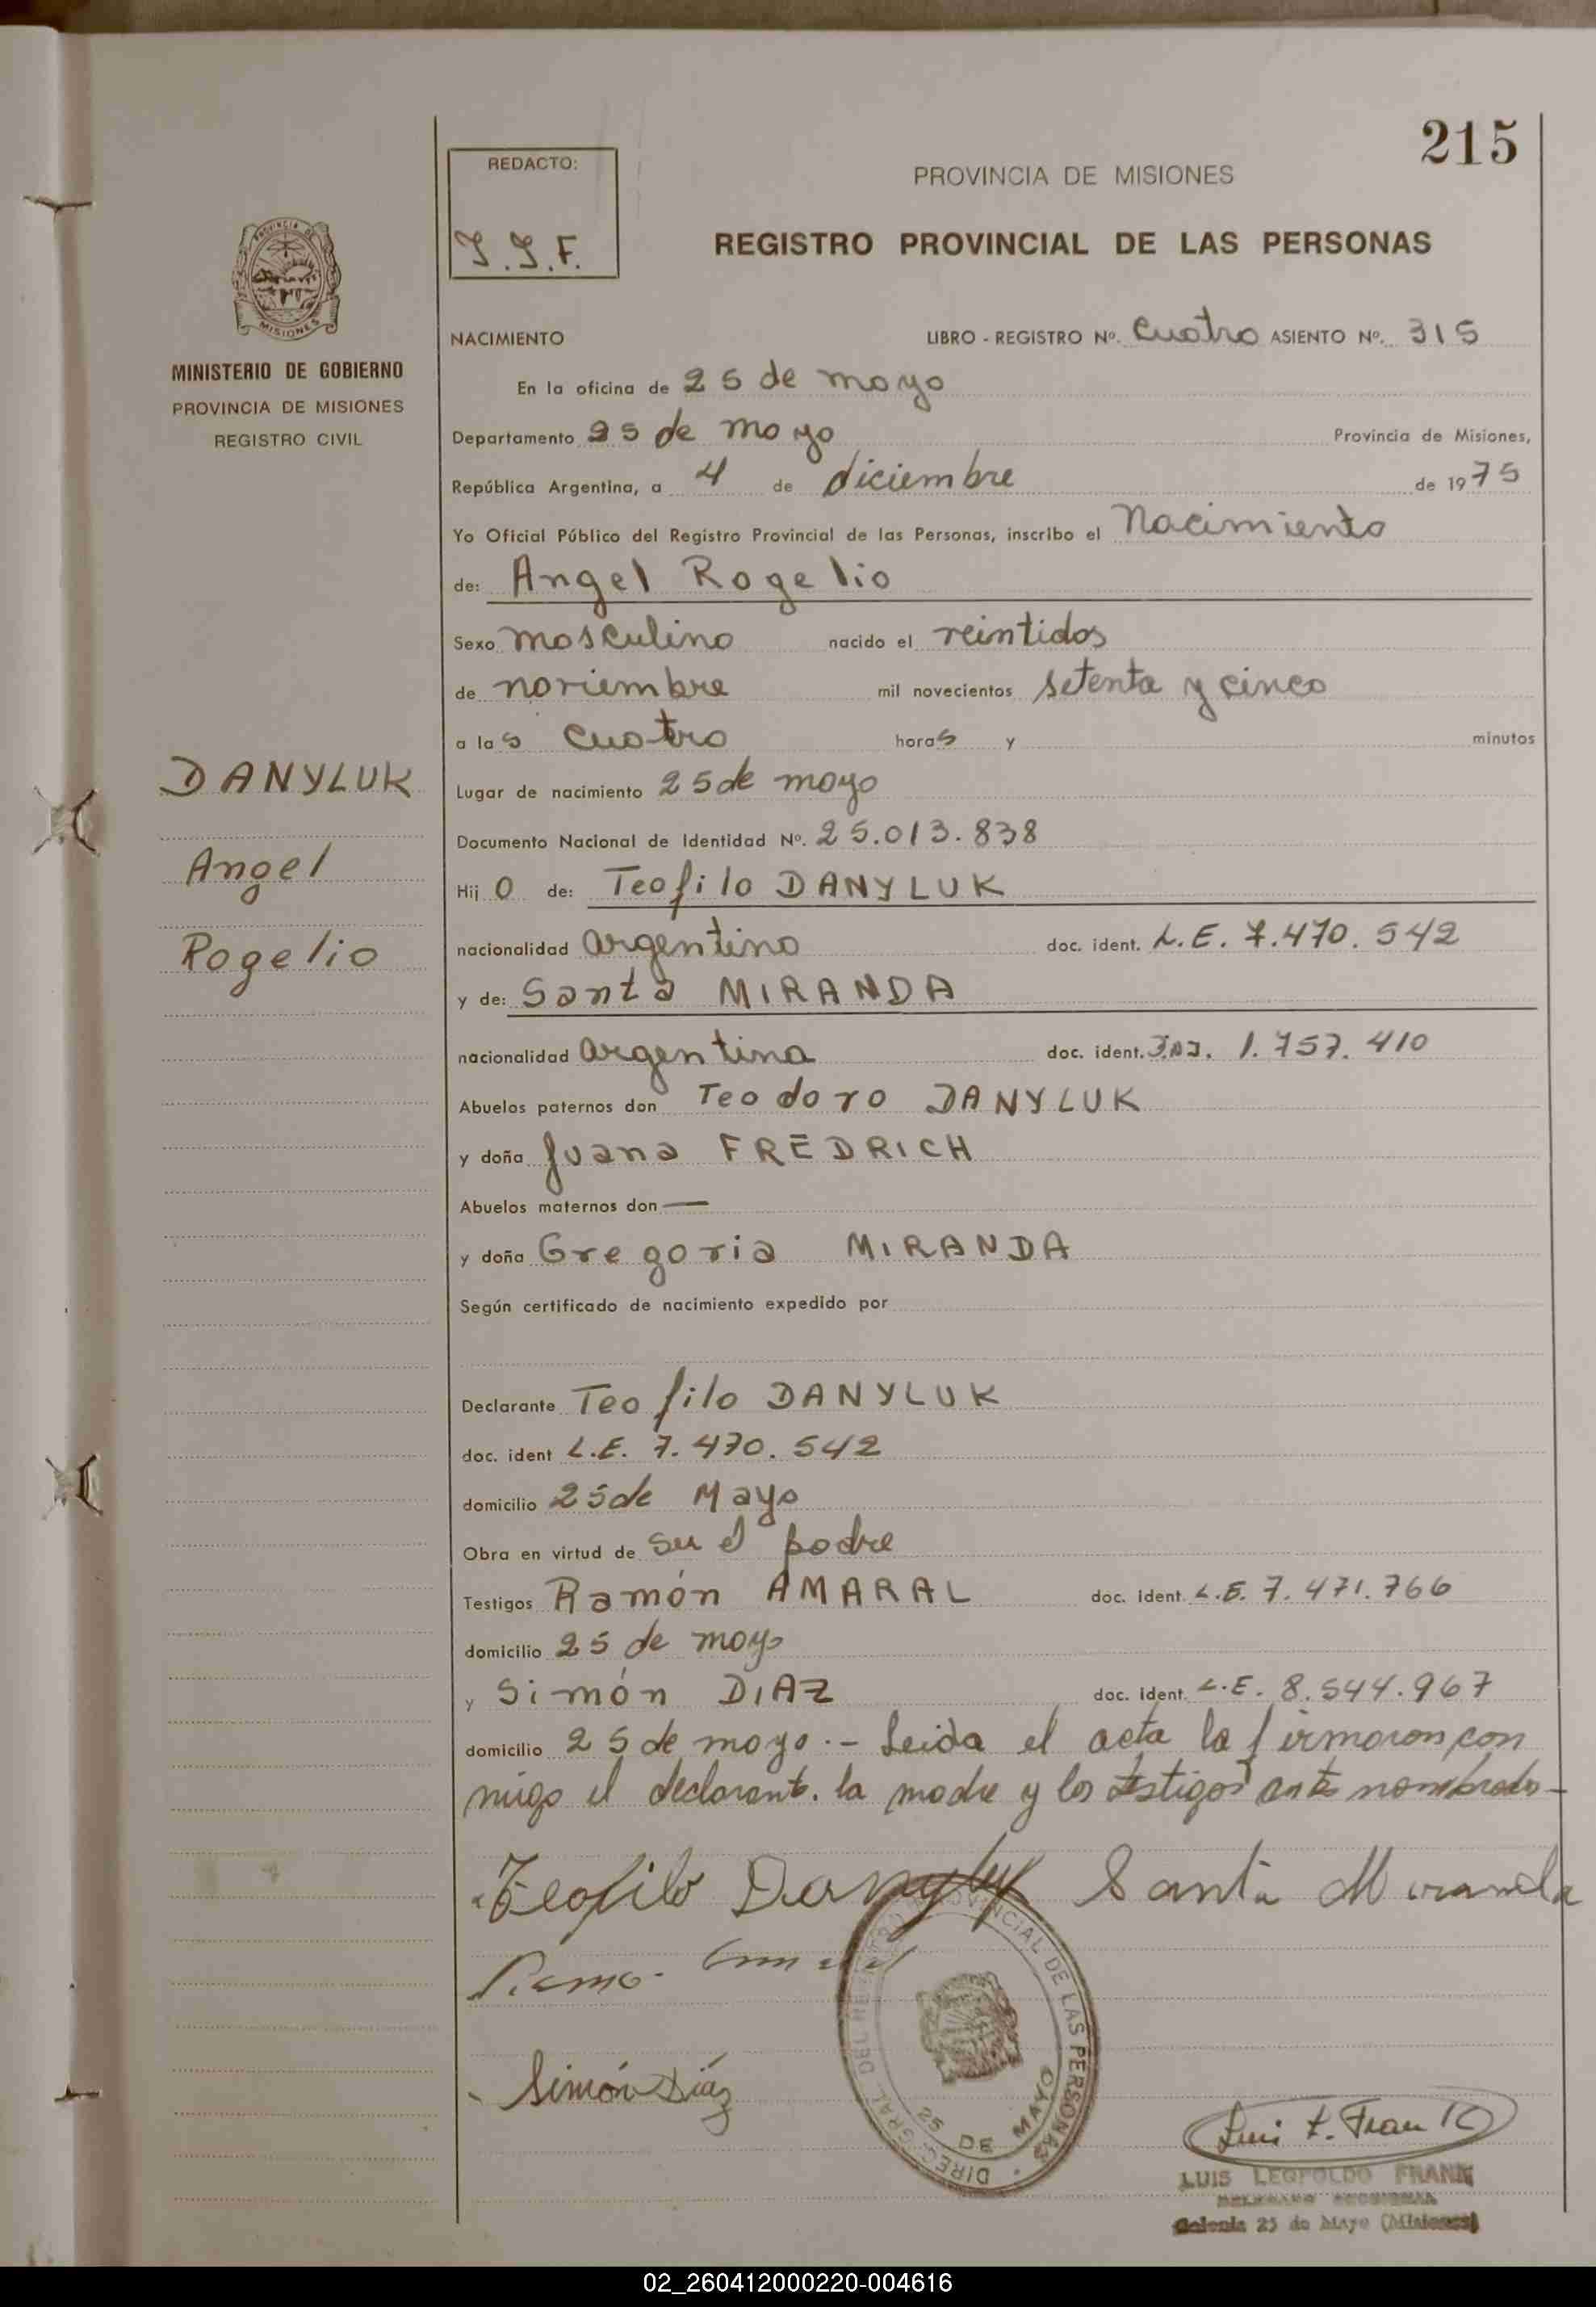 215
REDACTO:
J.J.F.
PROVINCIA DE MISIONES
REGISTRO PROVINCIAL DE LAS PERSONAS
PROVINCIA DE MISIONES
MINISTERIO DE GOBIERNO
PROVINCIA DE MISIONES
REGISTRO CIVIL
DANYLUK
Angel
Rogelio
NACIMIENTO LIBRO - REGISTRO Nº. Cuatro ASIENTO Nº. 315
En la oficina de 25 de mayo
Departamento 25 de mayo Provincia de Misiones,
República Argentina, a 4 de diciembre de 1975
Yo Oficial Público del Registro Provincial de las Personas, inscribo el Nacimiento
de: Angel Rogelio
Sexo masculino nacido el veintidos
de noviembre mil novecientos setenta y cinco
a las cuatro horas y minutos
Lugar de nacimiento 25 de mayo
Documento Nacional de Identidad Nº. 25.013.838
Hijo de: Teofilo DANYLUK
nacionalidad argentino doc. ident. L.E. 7.470.542
y de: Santa MIRANDA
nacionalidad argentina doc. ident. 1.757.410
Abuelos paternos don Teodoro DANYLUK
y doña Juana FREDRICH
Abuelos maternos don —
y doña Gregoria MIRANDA
Según certificado de nacimiento expedido por
Declarante Teofilo DANYLUK
doc. ident L.E. 7.470.542
domicilio 25 de Mayo
Obra en virtud de su el padre
Testigos Ramón AMARAL doc. ident. L.E. 7.471.766
domicilio 25 de mayo
y Simón DIAZ doc. ident. L.E. 8.544.967
domicilio 25 de mayo.- Leida el acta la firmaron con
migo el declarante. la madre y los testigos ante nombrados-
Teofilo Danyluk Santa Miranda
Simón Díaz
DIREC. GRAL. DEL REGISTRO PROVINCIAL DE LAS PERSONAS
25 DE MAYO
Luis L. Frank
LUIS LEOPOLDO FRANK
Colonia 25 de Mayo (Misiones)
02_260412000220-004616